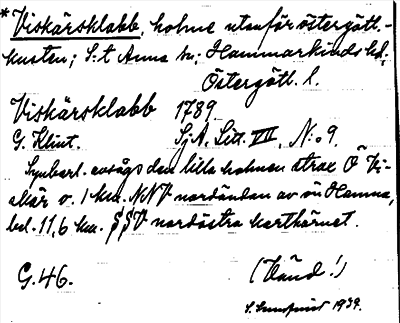 * Viskärsklabb, holme utanför östergött.-
kusten; S:t Anna sn; Hammarkinds hd,
Östergött. l.
Viskärsklabb 1789
G. Klint. SjA, Litt. VII, N:o 9.
Synbarl. avságs den lilla holmen strax Ö Vi-
skär o. 1 km. NNV nordändan av ön Hamna,
bel. 11,6 km. SSV nordöstra karthörnet.
G. 46. (Vänd!)
1939.